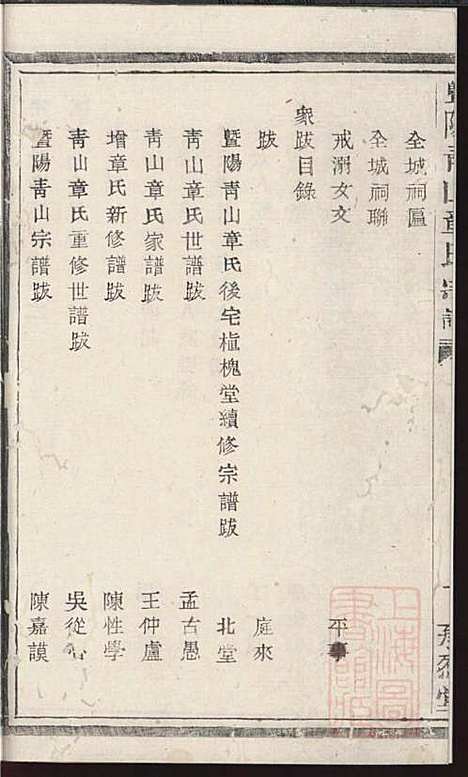 暨陽青山章氏宗譜
全城祠匾
全城祠聯
戒溺女文 平事
衆跋目錄
跋 庭來
暨陽青山章氏後宅植槐堂續修宗譜跋 北堂
青山章氏世譜跋 孟古愚
青山章氏家譜跋 王仲盧
增章氏新修譜跋 陳性學
青山章氏重修世譜跋 吳從
暨陽青山宗譜跋 陳嘉謨
上海圖書館